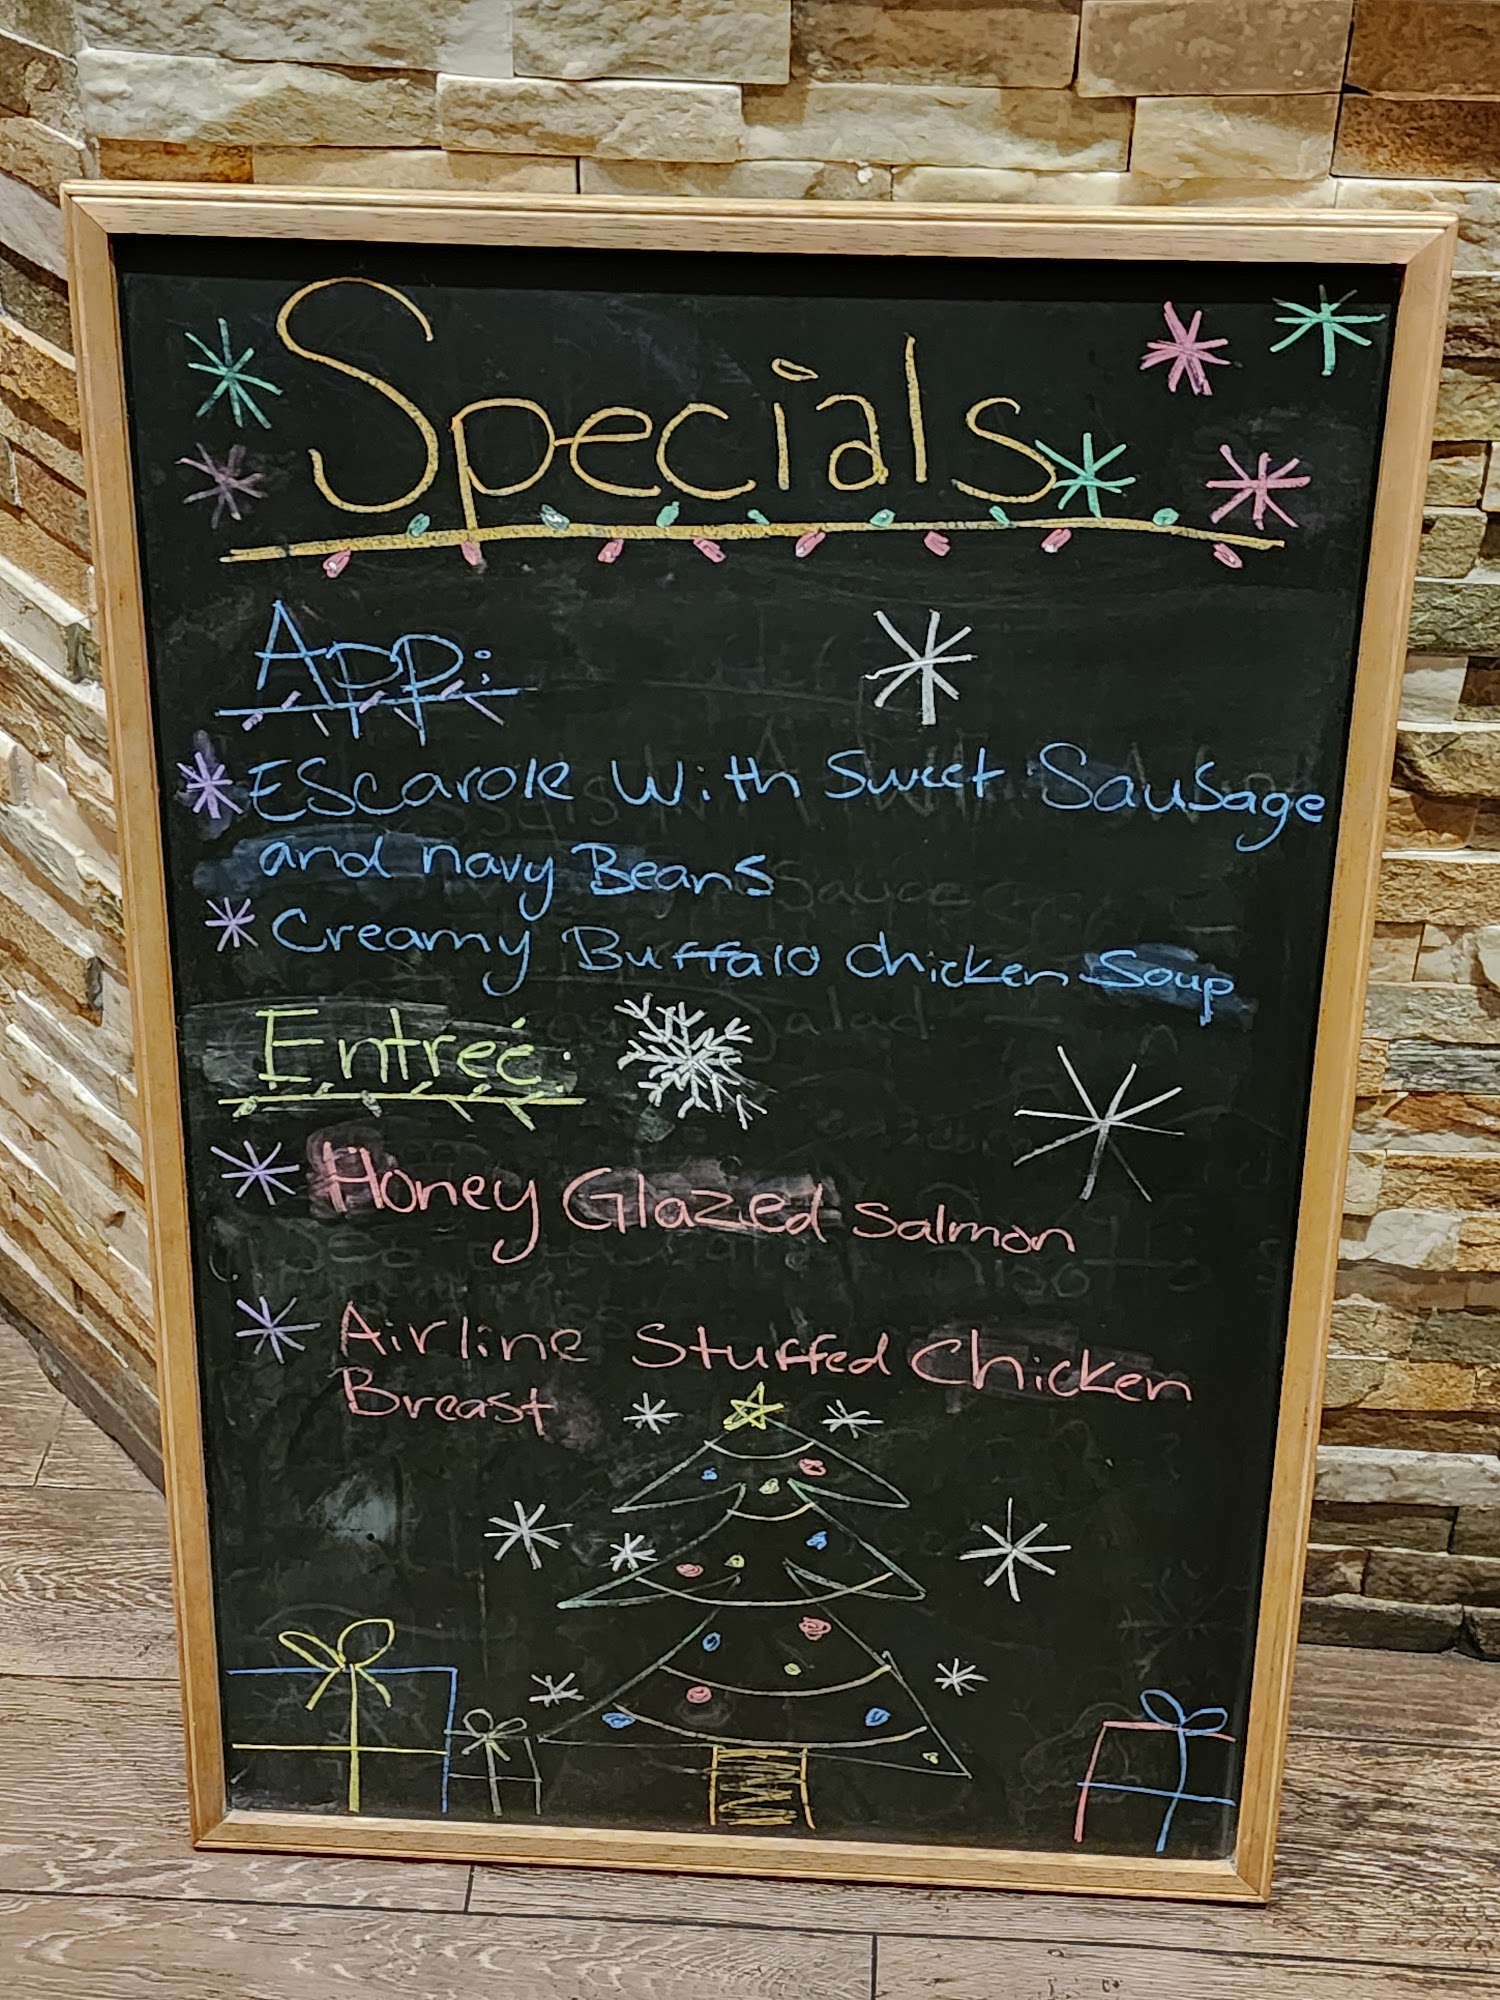 Specials
App:
Escarole With Sweet Sausage
and navy Beans
Creamy Buffalo chicken Soup
Entreé:
Honey Glazed salmon
Airline Stuffed Chicken
Breast